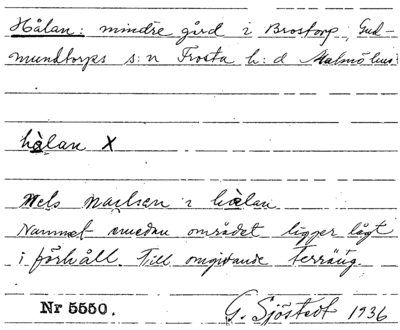 Hålan: mindre gård i Brostorp, Gud-
mundtorps s:n Frosta h:d Malmöhus
hòlan X
Nels Naelsen i hòlan
Namnet emedan området ligger lågt
i förhåll. Till omgivande terräng.
Nr 5550. G. Sjöstedt 1936